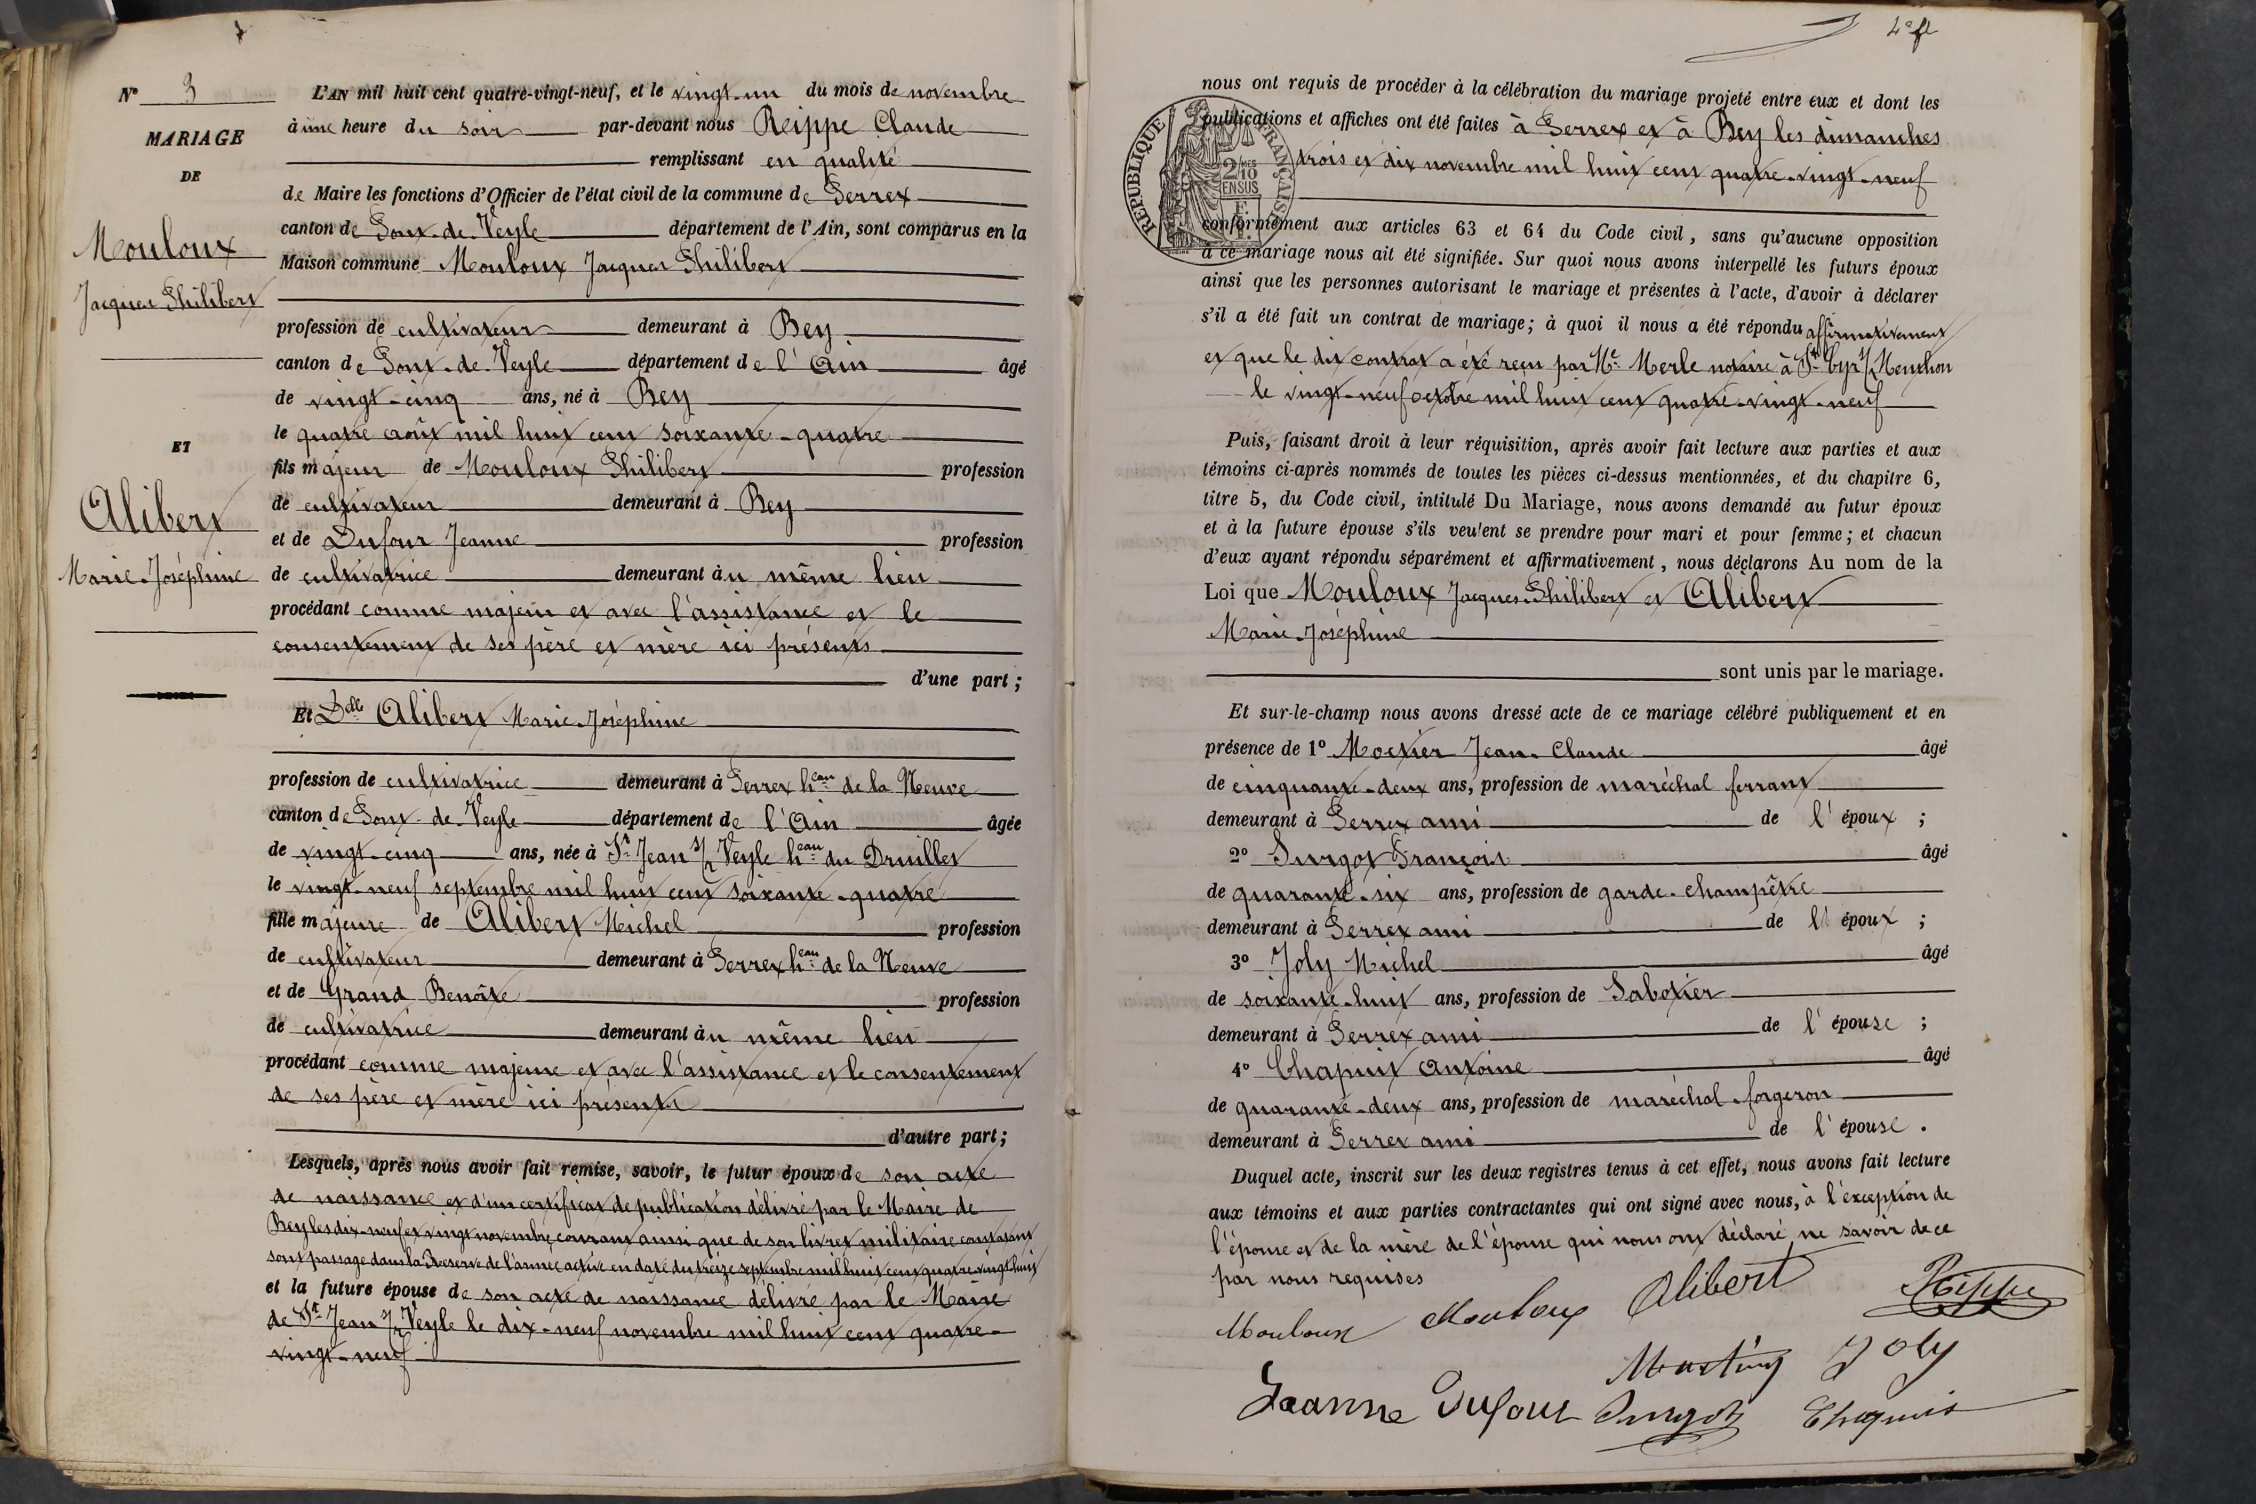 N° 3
MARIAGE
DE
Mouloux
Jacques Philibert
ET
Alibert
Marie-Joséphine
L'AN mil huit cent quatre-vingt-neuf, et le vingt-un du mois de novembre
à une heure du soir par-devant nous Reippe Claude
remplissant en qualité
de Maire les fonctions d'Officier de l'état civil de la commune de Perrex
canton de Pont-de-Veyle département de l'Ain, sont comparus en la
Maison commune Mouloux Jacques Philibert
profession de cultivateur demeurant à Bey
canton de Pont-de-Veyle département de l'Ain âgé
de vingt-cinq ans, né à Bey
le quatre août mil huit cent soixante-quatre
fils majeur de Mouloux Philibert profession
de cultivateur demeurant à Bey
et de Dufour Jeanne profession
de cultivatrice demeurant au même lieu
procédant comme majeur et avec l'assistance et le
consentement de ses père et mère ici présents
d'une part ;
Et Dlle Alibert Marie-Joséphine
profession de cultivatrice demeurant à Perrex heau de la Neuve
canton de Pont-de-Veyle département de l'Ain âgée
de vingt-cinq ans, née à St Jean s/ Veyle heau du Druillet
le vingt-neuf septembre mil huit cent soixante-quatre
fille majeure de Alibert Michel profession
de cultivateur demeurant à Perrex heau de la Neuve
et de Grand Benôite profession
de cultivatrice demeurant au même lieu
procédant comme majeure et avec l'assistance et le consentement
de ses père et mère ici présents
d'autre part ;
Lesquels, après nous avoir fait remise, savoir, le futur époux de son acte
de naissance et d'un certificat de publication délivré par le Maire de
Bey les dix-neuf et vingt novembre courant ainsi que de son livret militaire constatant
son passage dans la Réserve de l'armée active en date du treize septembre mil huit cent quatre-vingt-huit
et la future épouse de son acte de naissance délivré par le Maire
de St Jean s/ Veyle le dix-neuf novembre mil huit cent quatre-
vingt-neuf
2e fe
nous ont requis de procéder à la célébration du mariage projeté entre eux et dont les
publications et affiches ont été faites à Perrex et à Bey les dimanches
trois et dix novembre mil huit cent quatre-vingt-neuf
RÉPUBLIQUE FRANÇAISE
2/10 EN SUS
conformément aux articles 63 et 64 du Code civil, sans qu'aucune opposition
à ce mariage nous ait été signifiée. Sur quoi nous avons interpellé les futurs époux
ainsi que les personnes autorisant le mariage et présentes à l'acte, d'avoir à déclarer
s'il a été fait un contrat de mariage ; à quoi il nous a été répondu affirmativement
et que le dit contrat a été reçu par Me Merle notaire à St Cyr s/ Menthon
le vingt-neuf octobre mil huit cent quatre-vingt-neuf
Puis, faisant droit à leur réquisition, après avoir fait lecture aux parties et aux
témoins ci-après nommés de toutes les pièces ci-dessus mentionnées, et du chapitre 6,
titre 5, du Code civil, intitulé Du Mariage, nous avons demandé au futur époux
et à la future épouse s'ils veulent se prendre pour mari et pour femme ; et chacun
d'eux ayant répondu séparément et affirmativement, nous déclarons Au nom de la
Loi que Mouloux Jacques-Philibert et Alibert
Marie-Joséphine
sont unis par le mariage.
Et sur-le-champ nous avons dressé acte de ce mariage célébré publiquement et en
présence de 1° Jean-Claude âgé
de cinquante-deux ans, profession de maréchal ferrant
demeurant à Perrex ami de l'époux ;
2° Purgot François âgé
de quarante-six ans, profession de garde-champêtre
demeurant à Perrex ami de l'époux ;
3° Joly Michel âgé
de soixante-huit ans, profession de Sabotier
demeurant à Perrex ami de l'épouse ;
4° Chapuis Antoine âgé
de quarante-deux ans, profession de maréchal-forgeron
demeurant à Perrex ami de l'épouse.
Duquel acte, inscrit sur les deux registres tenus à cet effet, nous avons fait lecture
aux témoins et aux parties contractantes qui ont signé avec nous, à l'exception de
l'épouse et de la mère de l'épouse qui nous ont déclaré ne savoir de ce
par nous requises
Mouloux Mouloux Alibert Reippe
Joly
Jeanne Dufour Purgot Chapuis